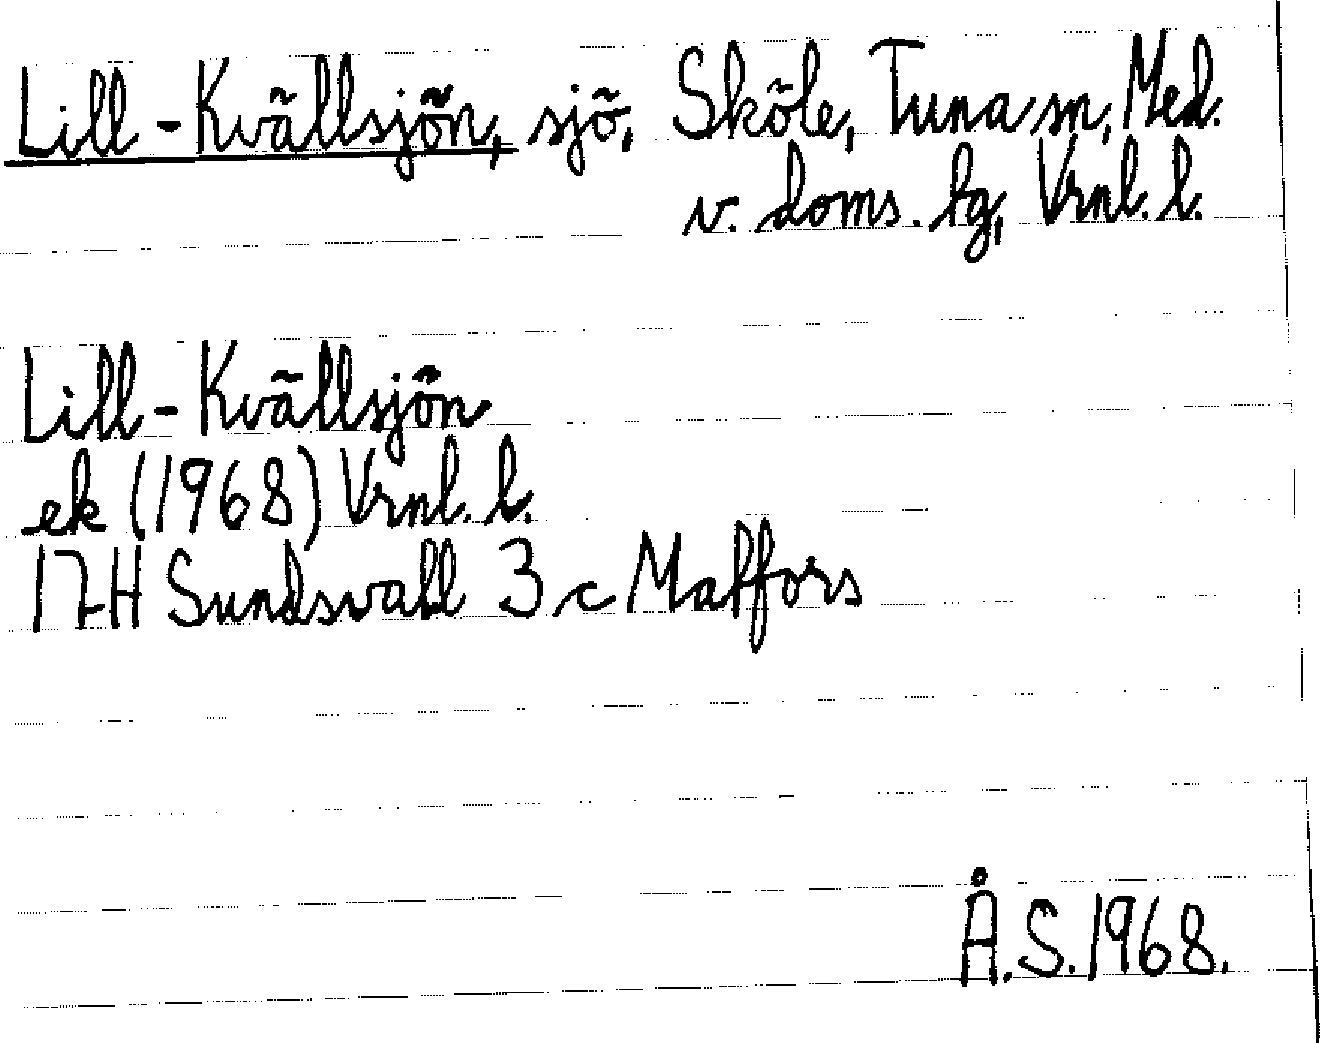 Lill-Kvällsjön, sjö, Sköle, Tuna sn, Med.
v. doms. fg, Vrnl. l.
Lill-Kvällsjön
ek (1968) Vrnl. l.
17H Sundsvall 3 c Matfors
Å.S. 1968.